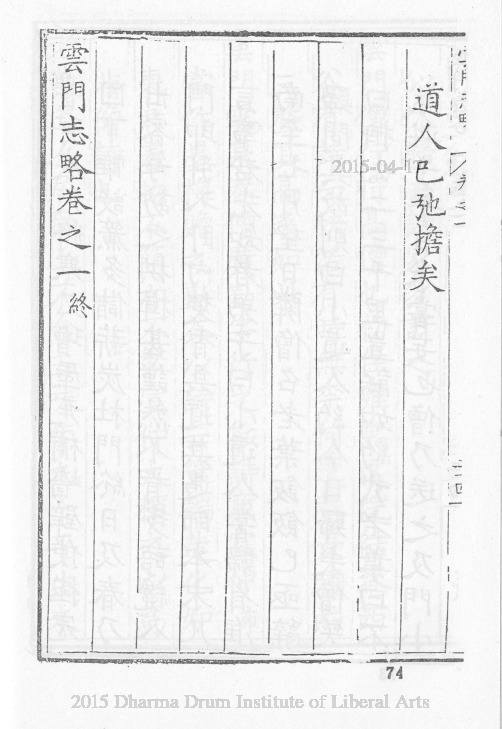 道人已弛擔矣
雲門志略卷之一終
2015-04-17
74
2015 Dharma Drum Institute of Liberal Arts